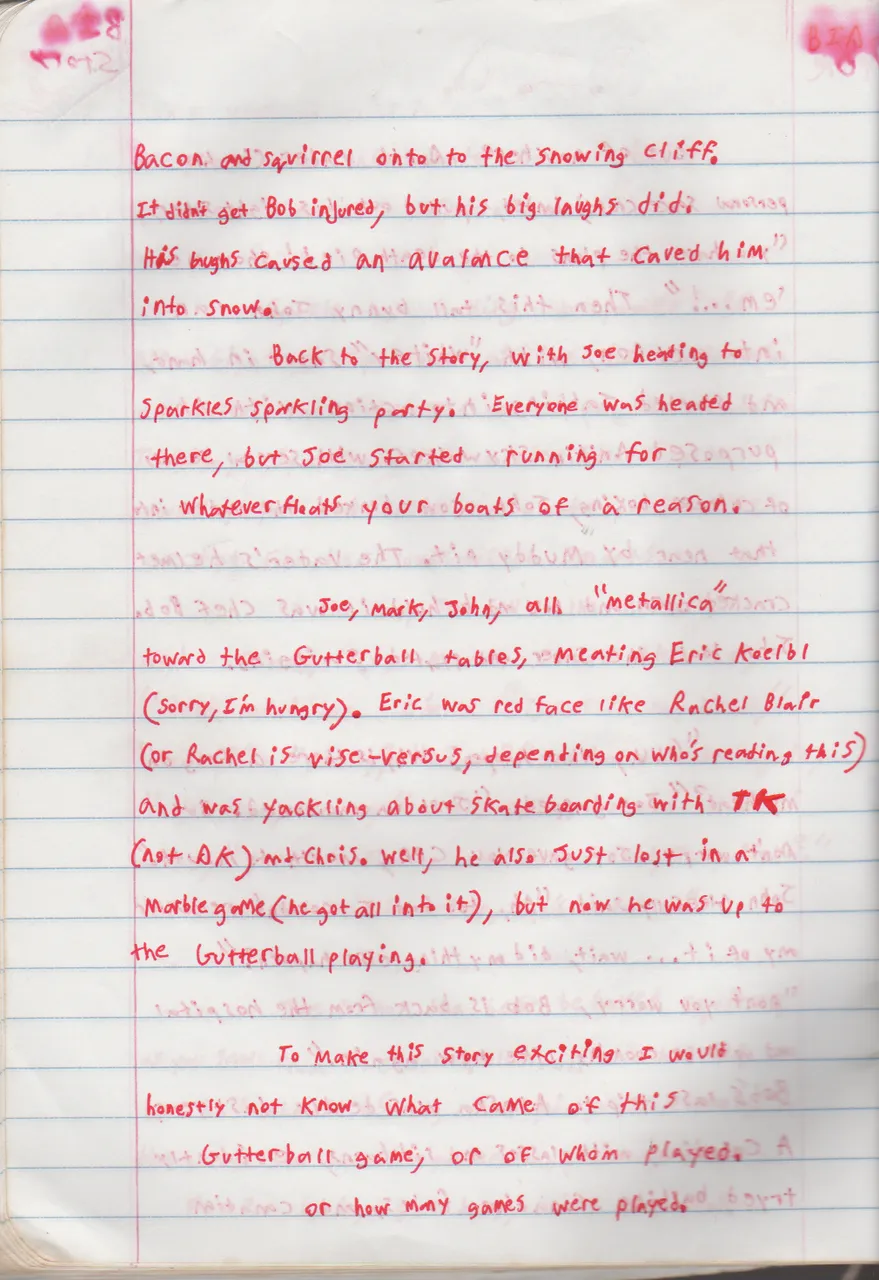 BIA
Bacon and squirrel onto to the snowing cliff.
It didn't get Bob injured, but his big laughs did.
His laughs caused an avalance that caved him
into snow.
Back to the story, with Joe heading to
Sparkles sparkling party. Everyone was headed
there, but Joe started running for
whatever floats your boats of a reason.
Joe, Mark, John, all "metallica"
toward the Gutterball tables, meating Eric Koelbl
(sorry, I'm hungry). Eric was red face like Rachel Blair
(or Rachel is vise-versus, depending on who's reading this)
and was yackling about skateboarding with TK
(not AK) and Chris. Well, he also just lost in a
Marble game (he got all into it), but now he was up to
the Gutterball playing.
To make this story exciting I would
honestly not know what came of this
Gutterball game, or of whom played.
or how many games were played.